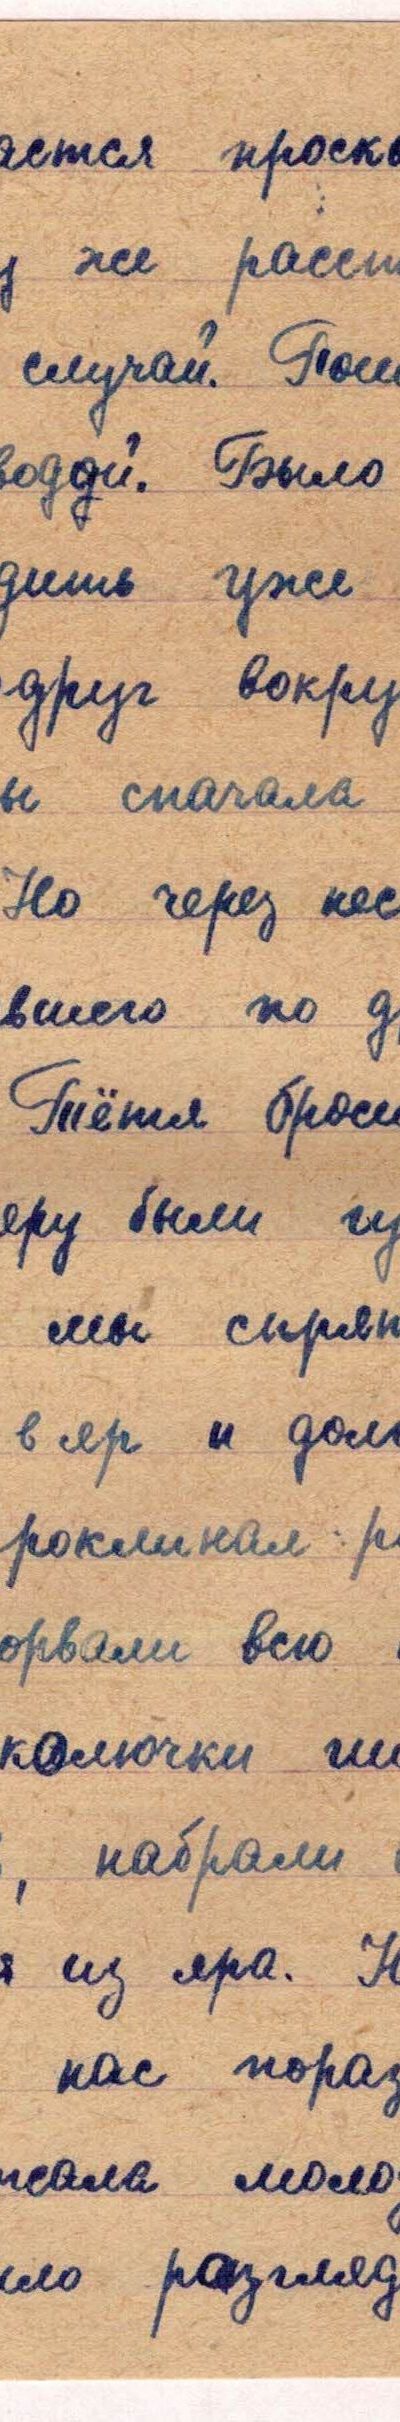 ается проскв
у же расст
случай. Пош
водой. Было
дить уже
друг вокру
ы сначала
Но через нес
вшего по д
Тётя броси
еру были гу
мы спрят
в яр и долг
роклинал р
орвали всю
колючки ши
, набрали
я из яра. Н
нас пораз
жала молод
ло разгляд